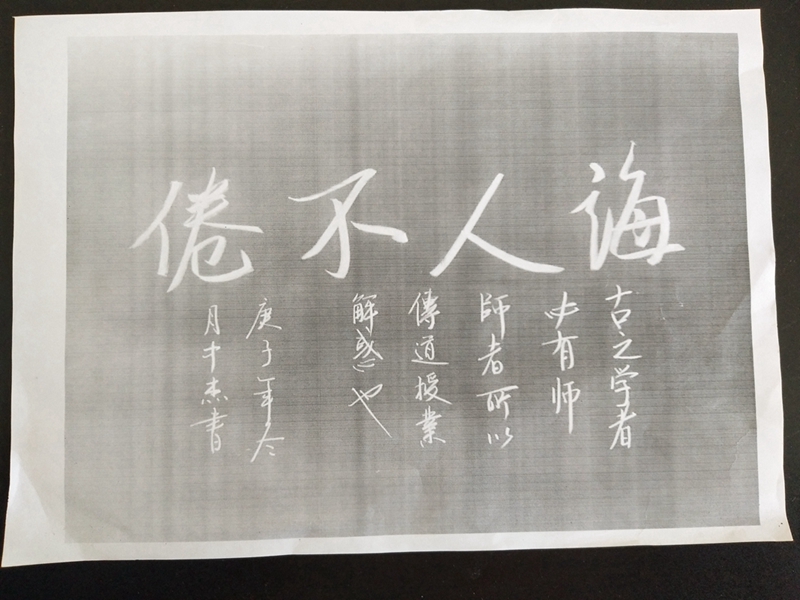 诲人不倦
古之学者
必有师
師者所以
傳道授業
解惑也
庚子年冬
月才杰書